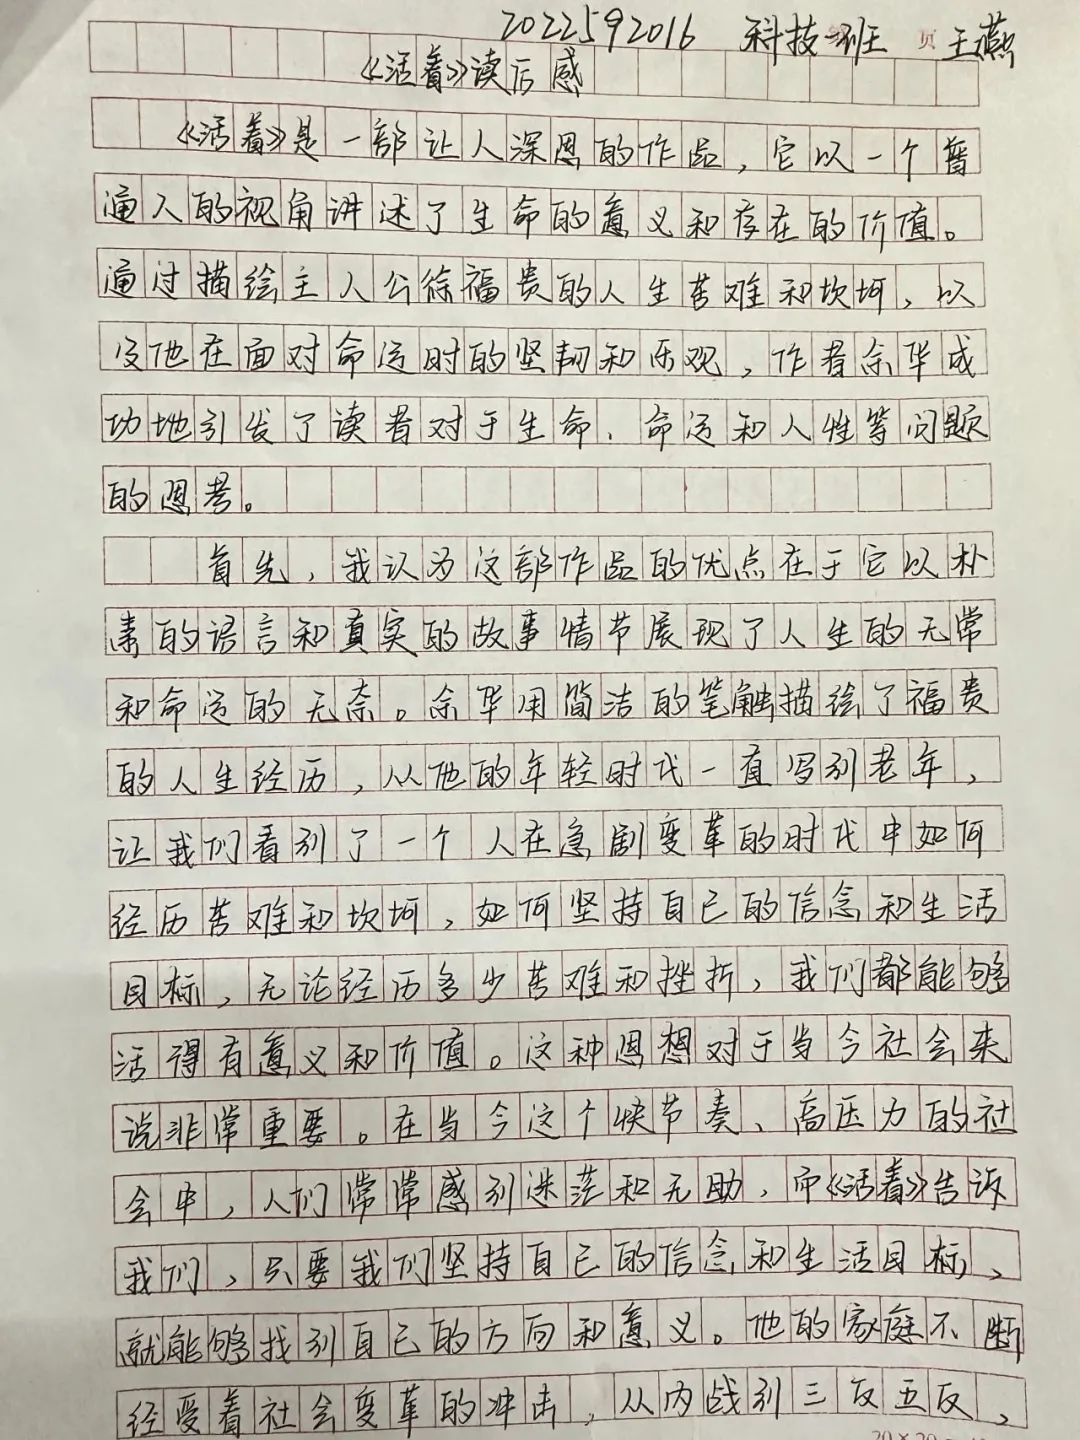 2022592016 科技一班 页 王燕
《活着》读后感
《活着》是一部让人深思的作品，它以一个普
通人的视角讲述了生命的意义和存在的价值。
通过描绘主人公徐福贵的人生苦难和坎坷，以
及他在面对命运时的坚韧和乐观，作者余华成
功地引发了读者对于生命、命运和人性等问题
的思考。
首先，我认为这部作品的优点在于它以朴
素的语言和真实的故事情节展现了人生的无常
和命运的无奈。余华用简洁的笔触描绘了福贵
的人生经历，从他的年轻时代一直写到老年，
让我们看到了一个人在急剧变革的时代中如何
经历苦难和坎坷，如何坚持自己的信念和生活
目标，无论经历多少苦难和挫折，我们都能够
活得有意义和价值。这种思想对于当今社会来
说非常重要。在当今这个快节奏、高压力的社
会中，人们常常感到迷茫和无助，而《活着》告诉
我们，只要我们坚持自己的信念和生活目标，
就能够找到自己的方向和意义。他的家庭不断
经受着社会变革的冲击，从内战到三反五反，